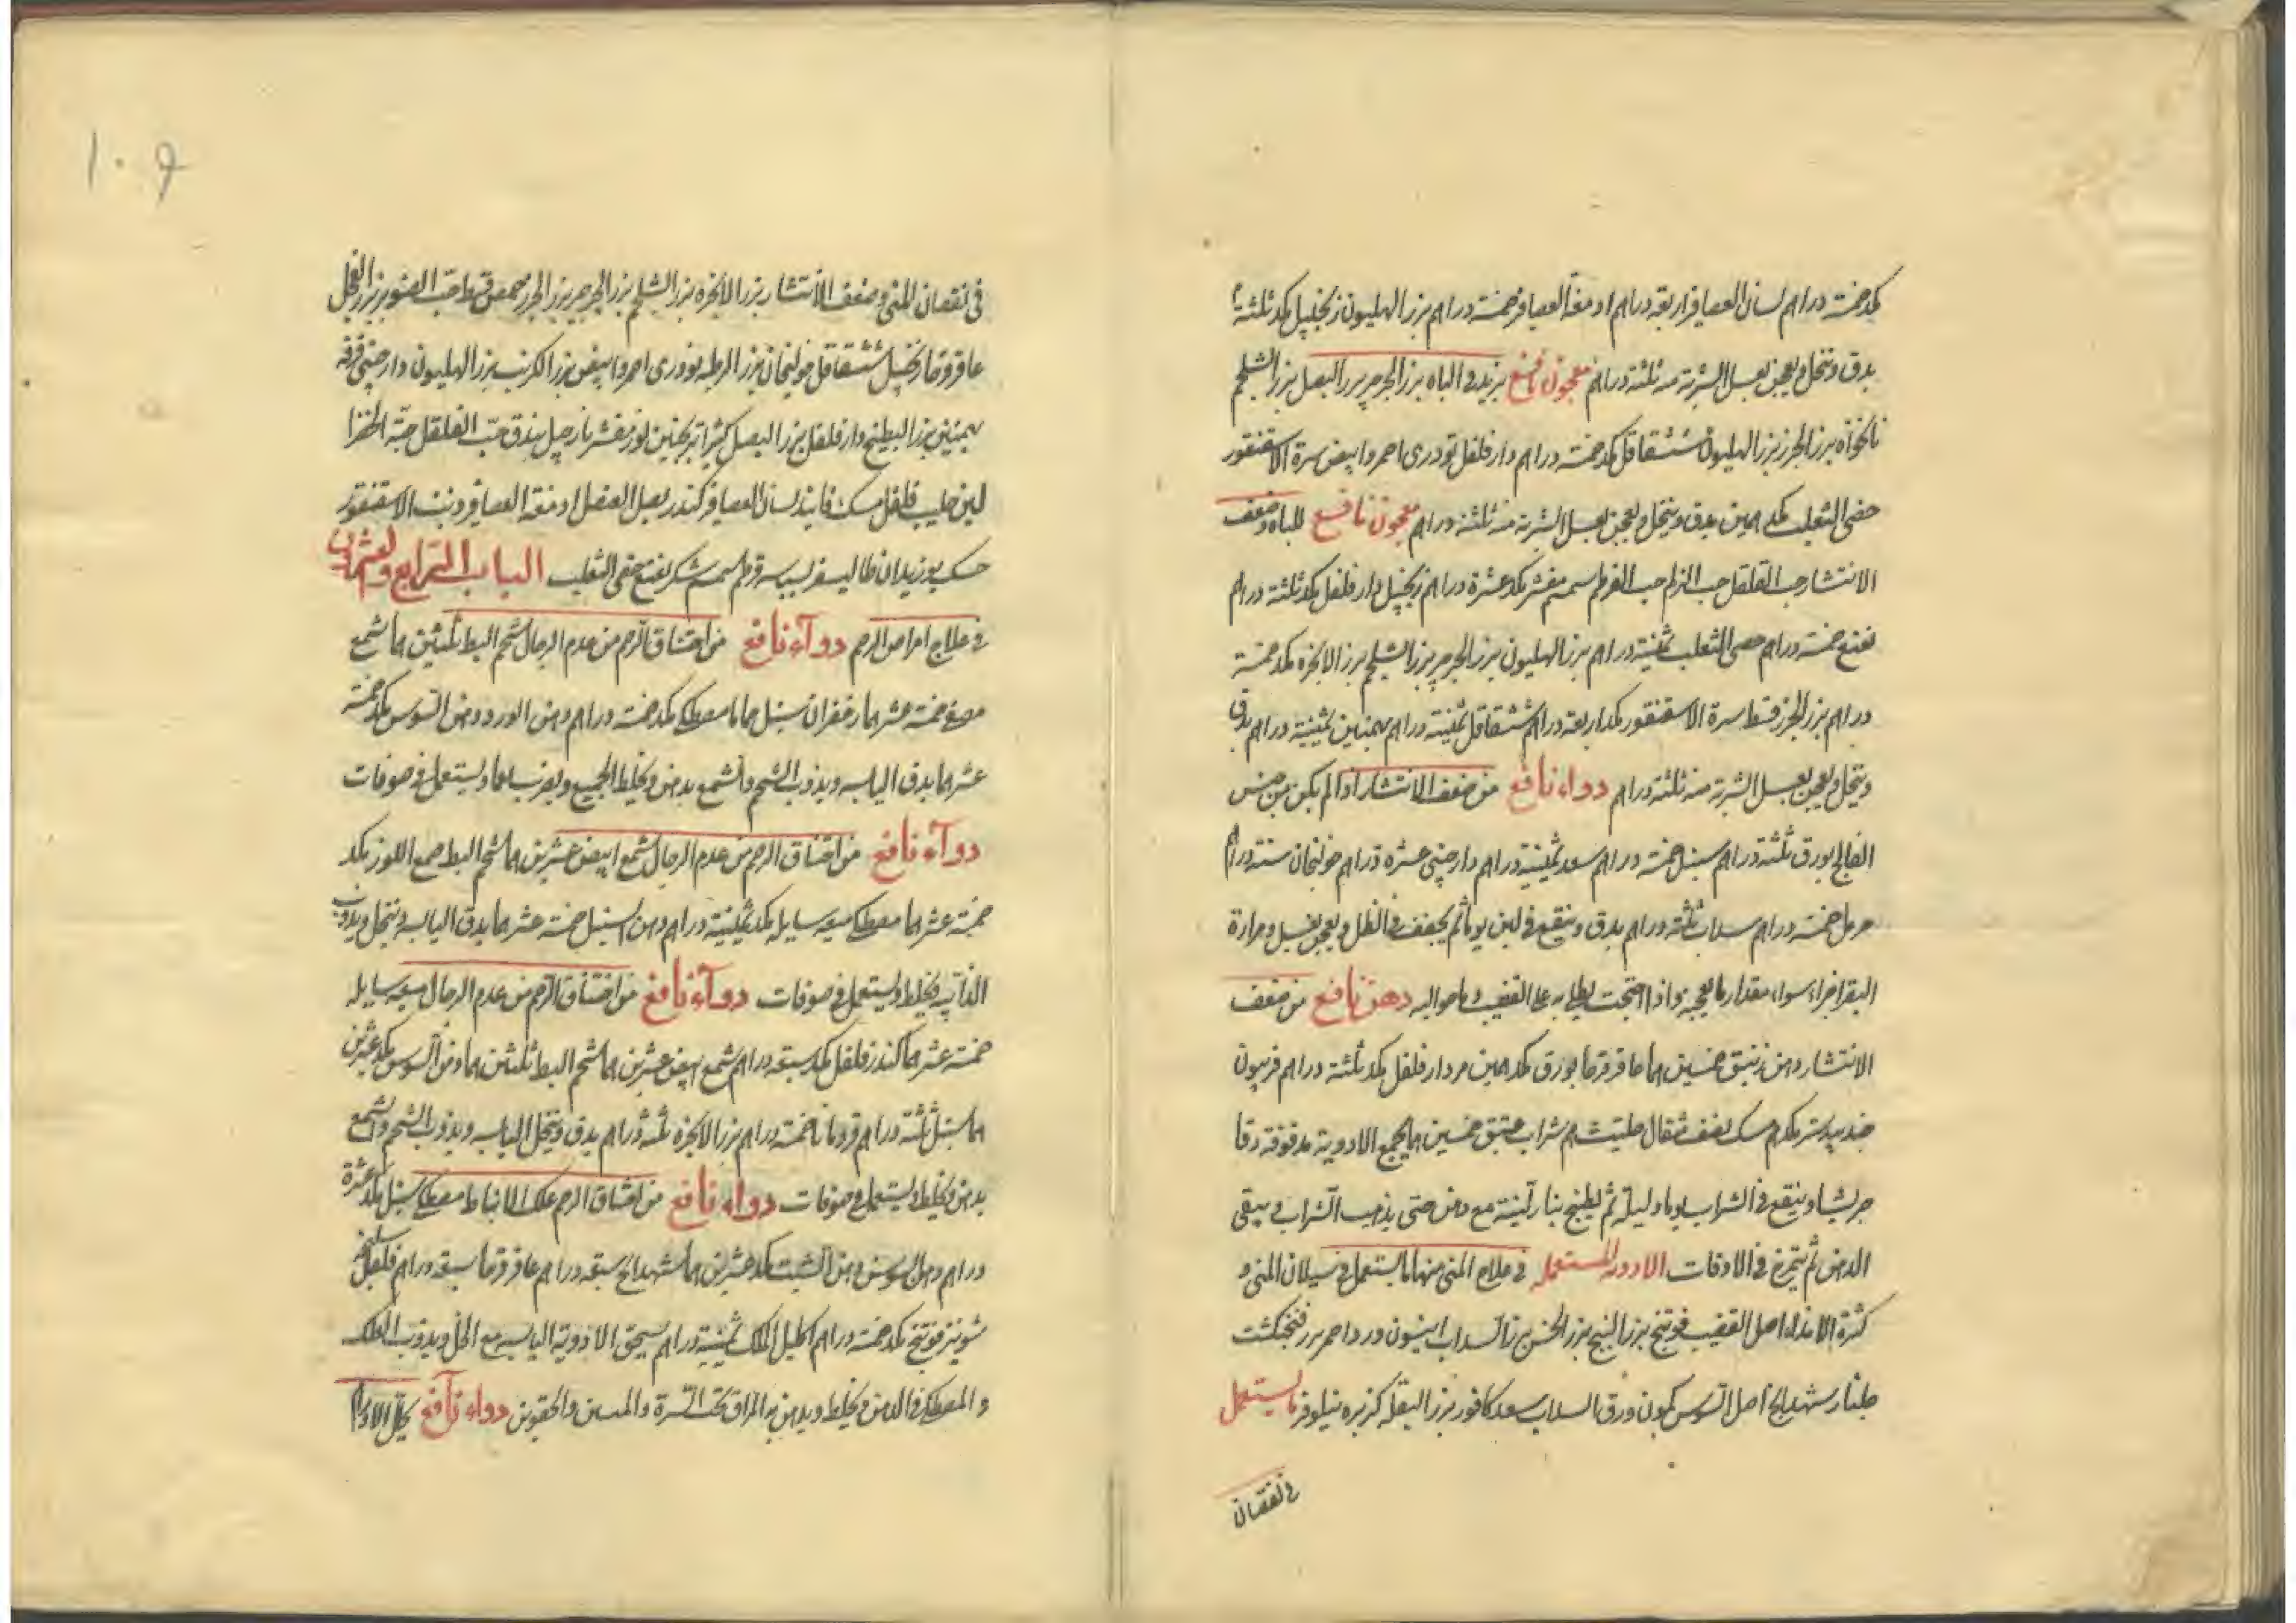 كد خمسة دراهم لسان العصافير اربعة دراهم ادمغة العصافير خمسة دراهم بزر الهليون زنجبيل كد ثلثة
يدق وينخل ويعجن بعسل الشربة منه ثلثة دراهم معجون نافع يزيد في الباه بزر الجرجير بزر البصل بزر الشلجم
نانخواه بزر الجزر بزر الهليون ششقاقل كد خمسة دراهم دار فلفل تودرى احمر وابيض سرة الاسقنقور
خصى الثعلب كد درهمين يدق وينخل ويعجن بعسل الشربة منه ثلثة دراهم معجون نافع للباه وضعف
الانتشار حب القلقل حب الزلم حب القرطم سمسم مقشر كد عشرة دراهم زنجبيل دار فلفل كد ثلثة دراهم
نعنع خمسة دراهم خصى الثعلب ثمنية دراهم بزر الهليون بزر الجرجير بزر الشلجم بزر الانجره كد خمسة
دراهم بزر الجزر قسط سرة الاسقنقور كد اربعة دراهم ششقاقل ثمنية دراهم بهمنين ثمنية دراهم يدق
وينخل ويعجن بعسل الشربة منه ثلثة دراهم دواء نافع من ضعف الانتشار اذا لم يكن من جنس
الفالج بورق ثلثة دراهم سنبل خمسة دراهم سعد ثمنية دراهم دارچينى عشرة دراهم خولنجان ستة دراهم
حرمل خمسة دراهم سداب ثلثة دراهم يدق وينقع في لبن يوما ثم يجفف في الظل ويعجن بعسل ومرارة
البقر اجزاء سواء مقدار ما يعجنه واذا احتجت يطلى به على القضيب وما حواليه دهن نافع من ضعف
الانتشار دهن زنبق خمسين درهما عاقرقرحا بورق كد درهمين مر دار فلفل كد ثلثة دراهم فربيون
جندبيدستر كد درهم مسك نصف مثقال حلتيت درهم شراب عتيق خمسين درهما يجمع الادوية مدقوقة دقا
جريشا وينقع في الشراب يوما وليلة ثم يطبخ بنار لينة مع دهن حتى يذهب الشراب ويبقى
الدهن ثم يتمرخ في الاوقات الادوية المستعملة في علاج المنى منها ما يستعمل في سيلان المنى و
كثرة الامذاء اصل القصب فوتنج بزر البنج بزر الخس بزر السداب انيسون ورد احمر بزر فنجنكشت
جلنار شهدانج اصل السوس كمون ورق السداب سعد كافور بزر البقلة كزبره نيلوفر ما يستعمل
في نقصان
في نقصان المنى وضعف الانتشار بزر الانجره بزر الشلجم بزر الجرجير بزر الجزر حمص قسط حب الصنوبر بزر الفجل
عاقرقرحا زنجبيل ششقاقل خولنجان بزر الرطبه تودرى احمر وابيض بزر الكرنب بزر الهليون دارچينى قرفه
بهمنين بزر البطيخ دار فلفل بزر البصل كثيرا ترنجبين لوز مقشر نارجيل بندق حب القلقل حبة الخضرا
لبن حليب فلفل مسك فانيذ لسان العصافير كندر بصل العنصل ادمغة العصافير وذنب الاسقنقور
حسك بوزيدان طاليسفر بسباسه قرطم سمسم سكر نعنع خصى الثعلب الباب الرابع والعشرون
في علاج امراض الرحم دواء نافع من اختناق الرحم من عدم الرجال شحم البط ثلثين درهما شمع
مصفى خمسة عشر درهما زعفران سنبل حماما مصطكى كد خمسة دراهم دهن الورد دهن السوسن كد خمسة
عشر درهما يدق اليابسه ويذوب الشحم والشمع بدهن ويخلط الجميع ويضرب ناعما ويستعمل في صوفات
دواء نافع من اختناق الرحم من عدم الرجال شمع ابيض عشرين درهما شحم البط صمغ اللوز كد
خمسة عشر درهما مصطكى ميعه سايله كد ثمنية دراهم دهن السنبل خمسة عشر درهما يدق اليابسه وينخل ويذوب
الذائبه ويخلط ويستعمل في صوفات دواء نافع من اختناق الرحم من عدم الرجال ميعه سايله
خمسة عشر درهما كندر فلفل كد سبعة دراهم شمع ابيض عشرين درهما شحم البط ثلثين درهما دهن السوسن كد عشرين
درهما سنبل ثلثة دراهم قردمانا خمسة دراهم بزر الانجره ثلثة دراهم يدق وينخل اليابسه ويذوب الشحم والشمع
بدهن ويخلط ويستعمل في صوفات دواء نافع من اختناق الرحم علك الانباط مصطكى سنبل كد عشرة
دراهم دهن السوسن دهن الشبت كد عشرين درهما شهدانج سبعة دراهم عاقرقرحا سبعة دراهم فلفل
شونيز فوتنج كد خمسة دراهم اكليل الملك ثمنية دراهم يسحق الادوية اليابسه مع الخل ويذوب العلك
والمصطكى في الدهن ويخلط ويدهن به المراق تحت السرة والمتنين والحقوين دواء نافع يحلل الاورام